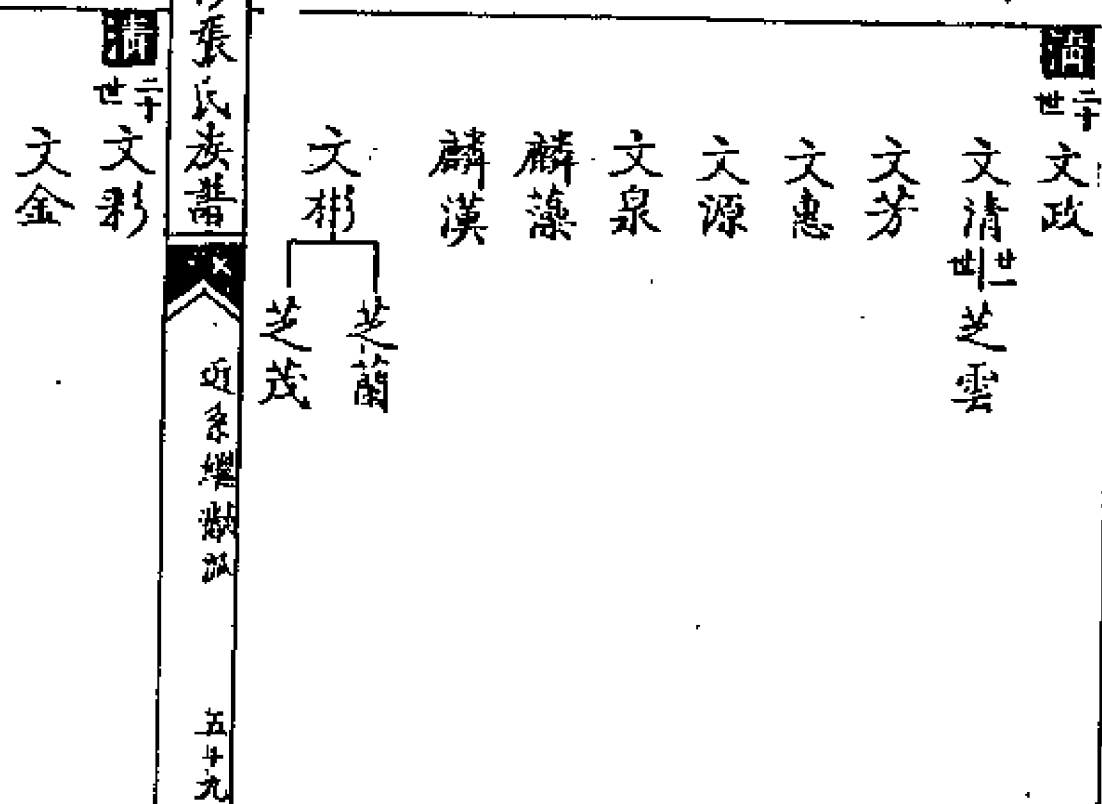 二十世
文政
文清
廿一世
芝雲
文芳
文惠
文源
文泉
麟藻
麟漢
文彬
芝蘭
芝茂
張氏族譜
近系繼
五十九
清
二十世
文彩
文金